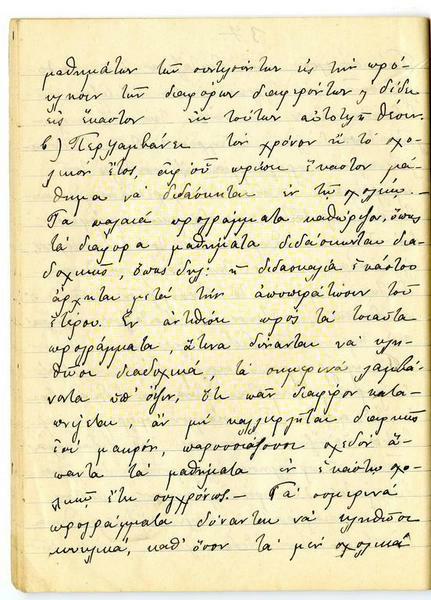 μαθημάτων τῶν συντεινόντων εἰς τὴν πρό-
κλησιν τῶν διαφόρων διαφερόντων ἢ δίδει
εἰς ἕκαστον ἐκ τούτων αὐτοτελῆ θέσιν.
β) Περιλαμβάνει τὸν χρόνον ἢ τὸ σχο-
λικὸν ἔτος, ἀφ' οὗ πρέπει ἕκαστον μά-
θημα νὰ διδάσκηται ἐν τῇ σχολείῳ.—
Τὰ παλαιὰ προγράμματα καθώριζον, ὅπως
τὰ διάφορα μαθήματα διδάσκωνται δια-
δοχικῶς, ὅπως δηλ: ἡ διδασκαλία ἑκάστου
ἄρχηται μετὰ τὴν ἀποπεράτωσιν τοῦ
ἑτέρου. Ἐν ἀντιθέσει πρὸς τὰ τοιαῦτα
προγράμματα, ἅτινα δύνανται νὰ κλη-
θῶσι διαδοχικά, τὰ σημερινὰ λαμβά-
νοντα ὑπ' ὄψιν, ὅτι πᾶν διαφέρον κατα-
πνίγεται, ἂν μὴ καλλιεργῆται διαρκῶς
ἐπὶ μακρόν, παρουσιάζουσι σχεδὸν ἅ-
παντα τὰ μαθήματα ἐν ἑκάστῳ σχο-
λικῷ ἔτει συγχρόνως.— Τὰ σημερινὰ
προγράμματα δύνανται νὰ κληθῶσι
κυκλικά, καθ' ὅσον τὰ μὲν σχολικὰ